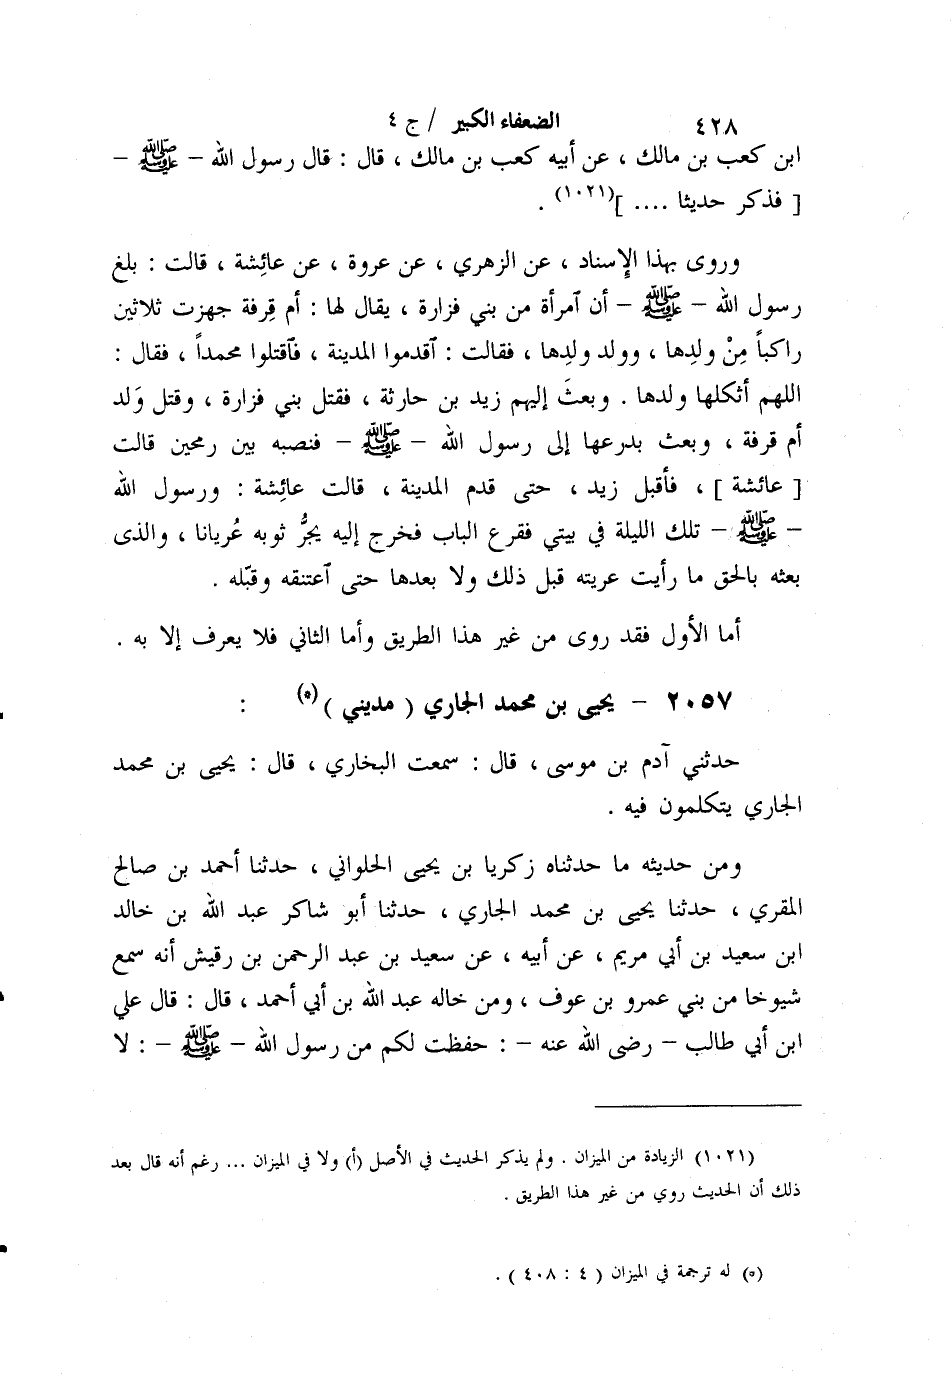 ٤٢٨ الضعفاء الكبير / ج ٤
ابن كعب بن مالك ، عن أبيه كعب بن مالك ، قال : قال رسول الله – ﷺ –
[ فذكر حديثا .... ](١٠٢١) .
وروى بهذا الإسناد ، عن الزهري ، عن عروة ، عن عائشة ، قالت : بلغ
رسول الله – ﷺ – أن آمرأة من بني فزارة ، يقال لها : أم قِرفة جهزت ثلاثين
راكباً مِنْ ولدِها ، وولد ولدِها ، فقالت : آقدموا المدينة ، فآقتلوا محمداً ، فقال :
اللهم أثكلها ولدها . وبعثَ إليهم زيد بن حارثة ، فقتل بني فزارة ، وقتل وَلد
أم قرفة ، وبعث بدرعها إلى رسول الله – ﷺ – فنصبه بين رمحين قالت
[ عائشة ] ، فأقبل زيد ، حتى قدم المدينة ، قالت عائِشة : ورسول الله
– ﷺ – تلك الليلة في بيتي فقرع الباب فخرج إليه يجرُّ ثوبه عُريانا ، والذى
بعثه بالحق ما رأيت عريته قبل ذلك ولا بعدها حتى آعتنقه وقبّله .
أما الأول فقد روى من غير هذا الطريق وأما الثاني فلا يعرف إلا به .
٢٠٥٧ – يحيى بن محمد الجاري ( مديني )(*) :
حدثني آدم بن موسى ، قال : سمعت البخاري ، قال : يحيى بن محمد
الجاري يتكلمون فيه .
ومن حديثه ما حدثناه زكريا بن يحيى الحلواني ، حدثنا أحمد بن صالح
المقري ، حدثنا يحيى بن محمد الجاري ، حدثنا أبو شاكر عبد الله بن خالد
ابن سعيد بن أبي مريم ، عن أبيه ، عن سعيد بن عبد الرحمن بن رقيش أنه سمع
شيوخا من بني عمرو بن عوف ، ومن خاله عبد الله بن أبي أحمد ، قال : قال علي
ابن أبي طالب – رضى الله عنه – : حفظت لكم من رسول الله – ﷺ – : لا
(١٠٢١) الزيادة من الميزان . ولم يذكر الحديث في الأصل (أ) ولا في الميزان ... رغم أنه قال بعد
ذلك أن الحديث روي من غير هذا الطريق .
(*) له ترجمة في الميزان ( ٤ : ٤٠٨ ) .